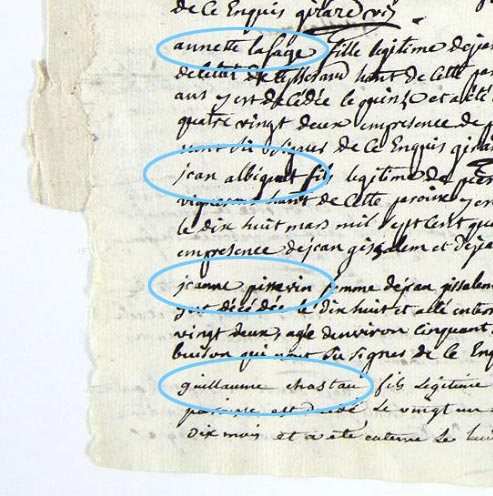 de Ce Enquis girard
annette lafage fille legitime de jea
habitant de cette par
ans y est decedée le quinze et a eté
quatre vingt deux en presence de
nont su signes de Ce Enquis gira
jean albiguet fils legitime de pier
vigneron habt de Cette paroisse y es
le dix huit mars mil sept cent qua
en presence de jean gissalem et de jea
jeanne pisserin femme de jean gissalem
y est decedée le dix huit et a eté enter
vingt deux, agée denviron cinquant
buison qui nont su signes de Ce Enq
guillaume chastau fils legitime
paroisse est decedé le vingt un
dix mois et a eté enterré le